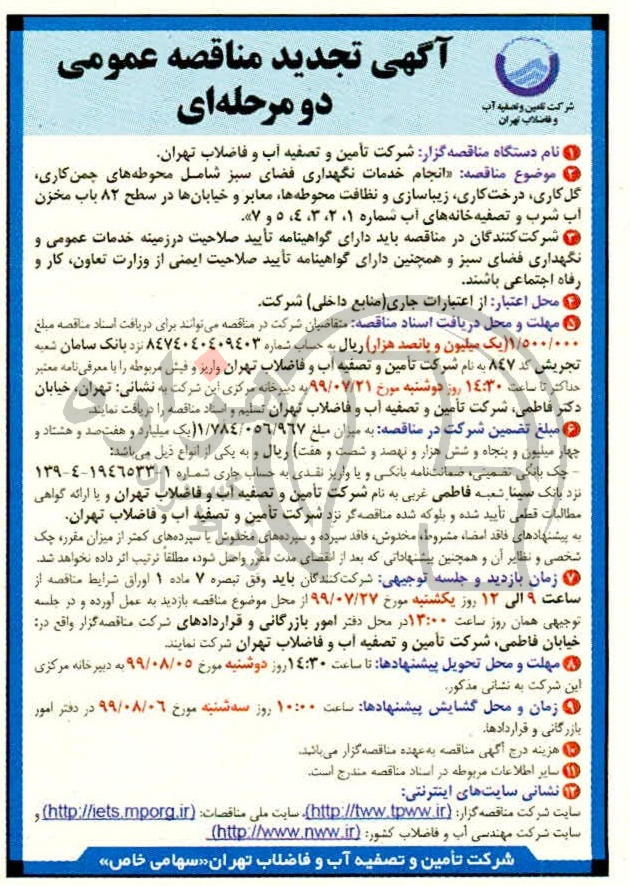 آگهی تجدید مناقصه عمومی
دو مرحله‌ای
شرکت تأمین و تصفیه آب
و فاضلاب تهران
۱ نام دستگاه مناقصه‌گزار: شرکت تأمین و تصفیه آب و فاضلاب تهران.
۲ موضوع مناقصه: «انجام خدمات نگهداری فضای سبز شامل محوطه‌های چمن‌کاری،
گل‌کاری، درخت‌کاری، زیباسازی و نظافت محوطه‌ها، معابر و خیابان‌ها در سطح ۸۲ باب مخزن
آب شرب و تصفیه‌خانه‌های آب شماره ۱، ۲، ۳، ۴، ۵ و ۷».
۳ شرکت‌کنندگان در مناقصه باید دارای گواهینامه تأیید صلاحیت درزمینه خدمات عمومی و
نگهداری فضای سبز و همچنین دارای گواهینامه تأیید صلاحیت ایمنی از وزارت تعاون، کار و
رفاه اجتماعی باشند.
۴ محل اعتبار: از اعتبارات جاری(منابع داخلی) شرکت.
۵ مهلت و محل دریافت اسناد مناقصه: متقاضیان شرکت در مناقصه می‌توانند برای دریافت اسناد مناقصه مبلغ
۱/۵۰۰/۰۰۰(یک میلیون و پانصد هزار) ریال به حساب شماره ۸۴۷۴۰۴۰۴۰۹۴۰۳ نزد بانک سامان شعبه
تجریش کد ۸۴۷ به نام شرکت تأمین و تصفیه آب و فاضلاب تهران واریز و فیش مربوطه را با معرفی‌نامه معتبر
حداکثر تا ساعت ۱۴:۳۰ روز دوشنبه مورخ ۹۹/۰۷/۲۱ به دبیرخانه مرکزی این شرکت به نشانی: تهران، خیابان
دکتر فاطمی، شرکت تأمین و تصفیه آب و فاضلاب تهران تسلیم و اسناد مناقصه را دریافت نمایند.
۶ مبلغ تضمین شرکت در مناقصه: به میزان مبلغ ۱/۷۸۴/۰۵۶/۹۶۷(یک میلیارد و هفت‌صد و هشتاد و
چهار میلیون و پنجاه و شش هزار و نهصد و شصت و هفت) ریال و به یکی از انواع ذیل می‌باشد:
- چک بانکی تضمینی، ضمانت‌نامه بانکی و یا واریز نقدی به حساب جاری شماره ۱-۱۹۴۶۵۳۳-۴-۱۳۹
نزد بانک سینا شعبه فاطمی غربی به نام شرکت تأمین و تصفیه آب و فاضلاب تهران و یا ارائه گواهی
مطالبات قطعی تأیید شده و بلوکه شده مناقصه‌گر نزد شرکت تأمین و تصفیه آب و فاضلاب تهران.
به پیشنهادهای فاقد امضاء، مشروط، مخدوش، فاقد سپرده و سپرده‌های مخدوش یا سپرده‌های کمتر از میزان مقرر، چک
شخصی و نظایر آن و همچنین پیشنهاداتی که بعد از انقضای مدت مقرر واصل شود، مطلقاً ترتیب اثر داده نخواهد شد.
۷ زمان بازدید و جلسه توجیهی: شرکت‌کنندگان باید وفق تبصره ۷ ماده ۱ اوراق شرایط مناقصه از
ساعت ۹ الی ۱۲ روز یکشنبه مورخ ۹۹/۰۷/۲۷ از محل موضوع مناقصه بازدید به عمل آورده و در جلسه
توجیهی همان روز ساعت ۱۳:۰۰در محل دفتر امور بازرگانی و قراردادهای شرکت مناقصه‌گزار واقع در:
خیابان فاطمی، شرکت تأمین و تصفیه آب و فاضلاب تهران شرکت نمایند.
۸ مهلت و محل تحویل پیشنهادها: تا ساعت ۱۴:۳۰روز دوشنبه مورخ ۹۹/۰۸/۰۵ به دبیرخانه مرکزی
این شرکت به نشانی مذکور.
۹ زمان و محل گشایش پیشنهادها: ساعت ۱۰:۰۰ روز سه‌شنبه مورخ ۹۹/۰۸/۰۶ در دفتر امور
بازرگانی و قراردادها.
۱۰ هزینه درج آگهی مناقصه به‌عهده مناقصه‌گزار می‌باشد.
۱۱ سایر اطلاعات مربوطه در اسناد مناقصه مندرج است.
۱۲ نشانی سایت‌های اینترنتی:
سایت شرکت مناقصه‌گزار: (http://tww.tpww.ir)، سایت ملی مناقصات: (http://iets.mporg.ir) و
سایت شرکت مهندسی آب و فاضلاب کشور: (http://www.nww.ir)
شرکت تأمین و تصفیه آب و فاضلاب تهران«سهامی خاص»